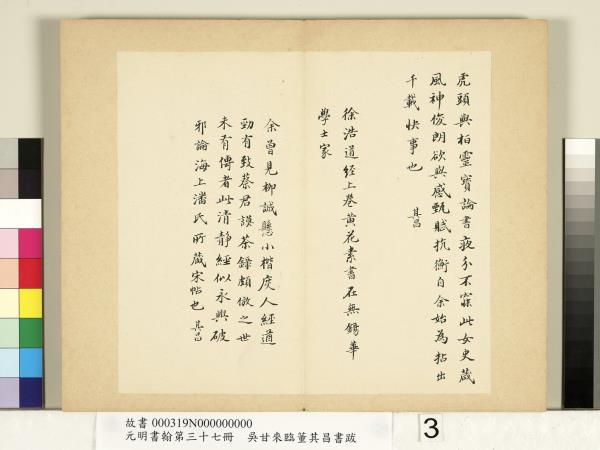 虎頭與桓靈寶論書夜分不寐此女史箴
風神俊朗欲與感甄賦抗衡自余始為拈出
千載快事也　其昌
徐浩道經上卷黄花素書在無錫華
學士家
余曾見柳誠懸小楷度人經遒
勁有致蔡君謨茶錄頗倣之世
未有傳者此清靜經似永興破
邪論海上潘氏所藏宋帖也　其昌
故書 000319N000000000
元明書翰第三十七冊　吳甘來臨董其昌書跋
3